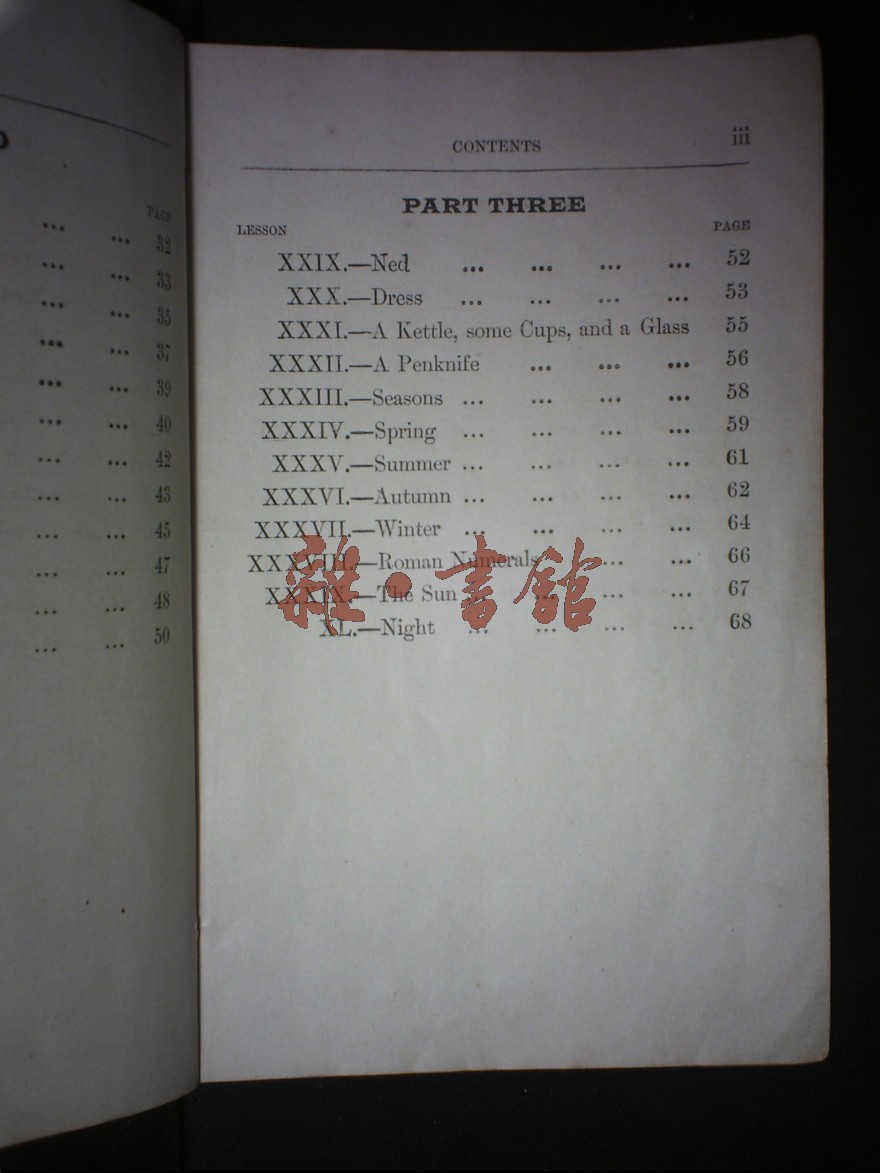 PAGE
... ... 32
... ... 33
... ... 35
... ... 37
... ... 39
... ... 40
... ... 42
... ... 43
... ... 45
... ... 47
... ... 48
... ... 50
CONTENTS iii
PART THREE
LESSON PAGE
XXIX.—Ned ... ... ... ... 52
XXX.—Dress ... ... ... ... 53
XXXI.—A Kettle, some Cups, and a Glass 55
XXXII.—A Penknife ... ... ... 56
XXXIII.—Seasons ... ... ... ... 58
XXXIV.—Spring ... ... ... ... 59
XXXV.—Summer ... ... ... ... 61
XXXVI.—Autumn ... ... ... ... 62
XXXVII.—Winter ... ... ... ... 64
XXXVIII.—Roman Numerals ... ... 66
XXXIX.—The Sun ... ... ... ... 67
XL.—Night ... ... ... ... 68
雜·書館